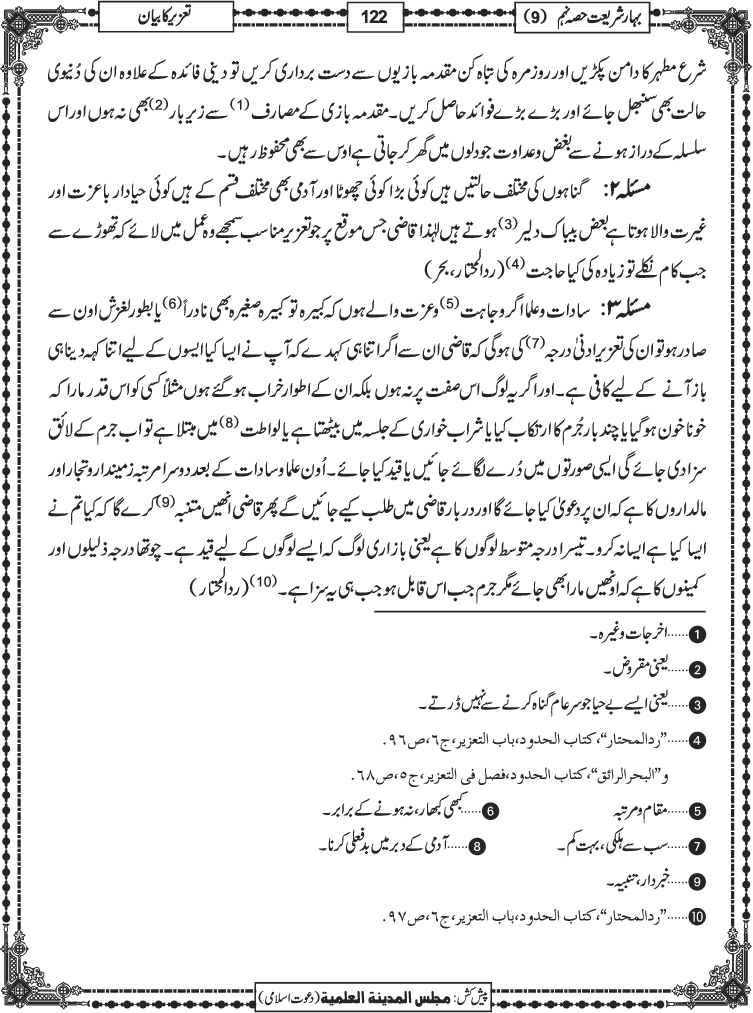 بہارِ شریعت حصہ نہم (9)
122
تعزیر کا بیان
شرع مطہر کا دامن پکڑیں اور روزمرہ کی تباہ کن مقدمہ بازیوں سے دست برداری کریں تو دینی فائدہ کے علاوہ ان کی دُنیوی
حالت بھی سنبھل جائے اور بڑے بڑے فوائد حاصل کریں۔ مقدمہ بازی کے مصارف (1) سے زیر بار (2) بھی نہ ہوں اور اس
سلسلہ کے دراز ہونے سے بغض و عداوت جو دلوں میں گھر کر جاتی ہے اوس سے بھی محفوظ رہیں۔
مسئلہ ۲: گناہوں کی مختلف حالتیں ہیں کوئی بڑا کوئی چھوٹا اور آدمی بھی مختلف قسم کے ہیں کوئی حیادار باعزت اور
غیرت والا ہوتا ہے بعض بیباک دلیر (3) ہوتے ہیں لہٰذا قاضی جس موقع پر جو تعزیر مناسب سمجھے وہ عمل میں لائے کہ تھوڑے سے
جب کام نکلے تو زیادہ کی کیا حاجت (4) (ردالمحتار، بحر)
مسئلہ ۳: سادات و علما اگر وجاہت (5) و عزت والے ہوں کہ کبیرہ تو کبیرہ صغیرہ بھی نادراً (6) یا بطور لغزش اون سے
صادر ہو تو ان کی تعزیر ادنیٰ درجہ (7) کی ہوگی کہ قاضی ان سے اگر اتنا ہی کہدے کہ آپ نے ایسا کیا ایسوں کے لیے اتنا کہہ دینا ہی
باز آنے کے لیے کافی ہے۔ اور اگر یہ لوگ اس صفت پر نہ ہوں بلکہ ان کے اطوار خراب ہو گئے ہوں مثلاً کسی کو اس قدر مارا کہ
خونا خون ہو گیا یا چند بار جُرم کا ارتکاب کیا یا شراب خواری کے جلسہ میں بیٹھتا ہے یا لواطت (8) میں مبتلا ہے تو اب جرم کے لائق
سزا دی جائے گی ایسی صورتوں میں دُرے لگائے جائیں یا قید کیا جائے۔ اُون علما و سادات کے بعد دوسرا مرتبہ زمیندار و تجار اور
مالداروں کا ہے کہ ان پر دعویٰ کیا جائے گا اور دربار قاضی میں طلب کیے جائیں گے پھر قاضی انھیں متنبہ (9) کرے گا کہ کیا تم نے
ایسا کیا ہے ایسا نہ کرو۔ تیسرا درجہ متوسط لوگوں کا ہے یعنی بازاری لوگ کہ ایسے لوگوں کے لیے قید ہے۔ چوتھا درجہ ذلیلوں اور
کمینوں کا ہے کہ اونھیں مارا بھی جائے مگر جرم جب اس قابل ہو جب ہی یہ سزا ہے۔ (10) (ردالمحتار)
1 ......اخراجات وغیرہ۔
2 ......یعنی مقروض۔
3 ......یعنی ایسے بے حیا جو سرعام گناہ کرنے سے نہیں ڈرتے۔
4 ......”ردالمحتار“،کتاب الحدود،باب التعزیر،ج٦،ص٩٦.
و”البحرالرائق“،کتاب الحدود،فصل فی التعزیر،ج٥،ص٦٨.
5 ......مقام و مرتبہ 6 ......کبھی کبھار، نہ ہونے کے برابر۔
7 ......سب سے ہلکی، بہت کم۔ 8 ......آدمی کے دبر میں بدفعلی کرنا۔
9 ......خبردار، تنبیہ۔
10 ......”ردالمحتار“،کتاب الحدود،باب التعزیر،ج٦،ص٩٧.
پیش کش: مجلس المدینة العلمیة (دعوت اسلامی)